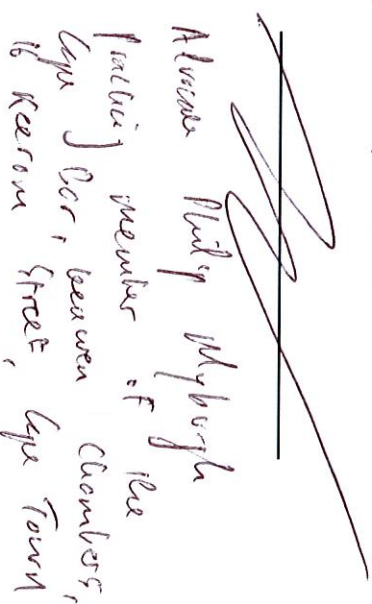 Advocate Philip Myburgh
Practising member of the
Cape Bar, Chambers,
16 Keerom Street, Cape Town